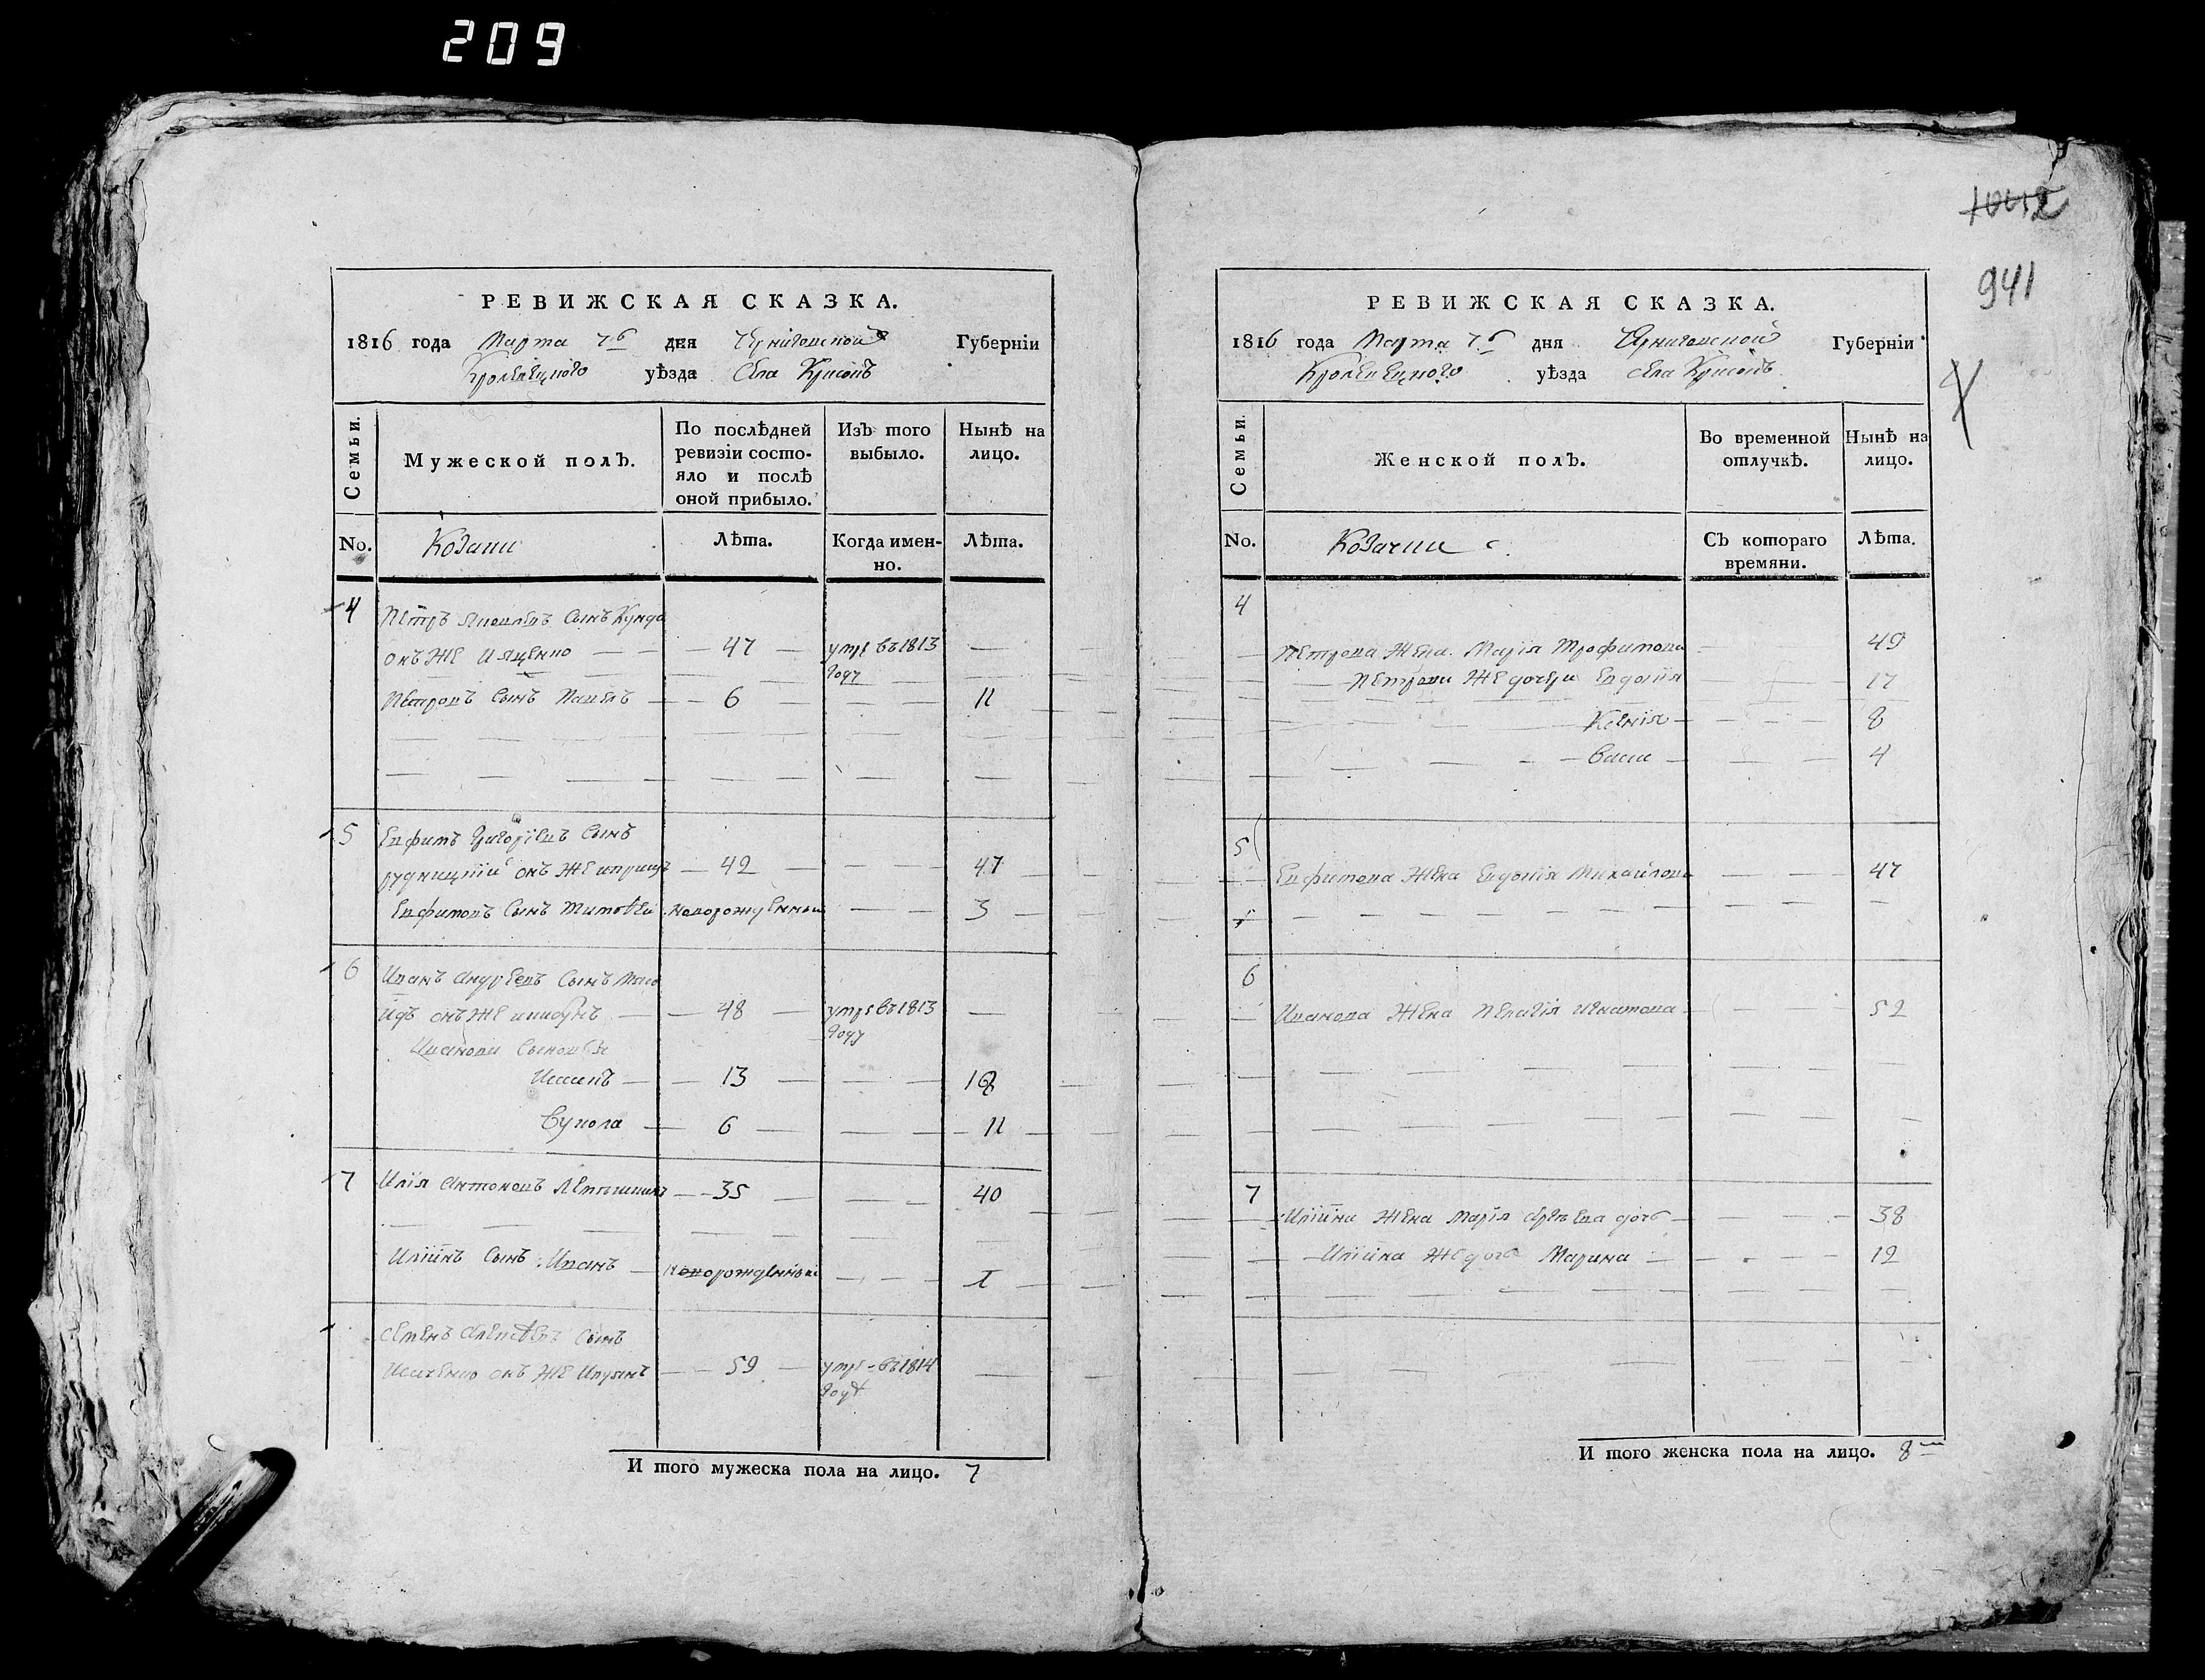 209
1042
941
РЕВИЖСКАЯ СКАЗКА.
1816 года Марта 7б дня Черниговской Губерніи
Кролевецкого уѣзда Села
Семьи.
Мужеской полъ.
По послѣдней ревизіи состо-
яло и послѣ
оной прибыло.
Изъ того
выбыло.
Нынѣ на
лицо.
No.
Козаки
Лѣта.
Когда имен-
но.
Лѣта.
4 Петръ Яковлевъ Сынъ Кунда
онъ же Иященко 47 умре въ 1813
году
Петровъ Сынъ Павелъ 6 11
5 Евфимъ Григоріевъ Сынъ
рудницкій онъ же 42 47
Евфимовъ Сынъ Тимоѳей новорожденный 3
6 Иванъ Андреевъ Сынъ
онъ же 48 умре въ 1813
году
Ивановы Сыновья
13 18
Вукола 6 11
7 Илія Антоновъ 35 40
Иліинъ Сынъ Иванъ новорожденный 1
Семенъ Алексѣевъ Сынъ
Исаченко онъ же 59 умре въ 1814
годѣ
И того мужеска пола на лицо. 7
РЕВИЖСКАЯ СКАЗКА.
1816 года Марта 7б дня Черниговской Губерніи
Кролевецкого уѣзда села
Семьи.
Женской полъ.
Во временной
отлучкѣ.
Нынѣ на
лицо.
No.
Козачки
Съ котораго
времяни.
Лѣта.
4
Петрова Жена Марія Трофимова 49
Петровы Же дочери Евдокія 17
Ксенія 8
4
5
Евфимова Жена Евдокія Михайлова 47
6
Иванова Жена Пелагія Игнатова 52
7
Иліина Жена Марія дочь 38
Иліина Же дочь Марина 12
И того женска пола на лицо. 8